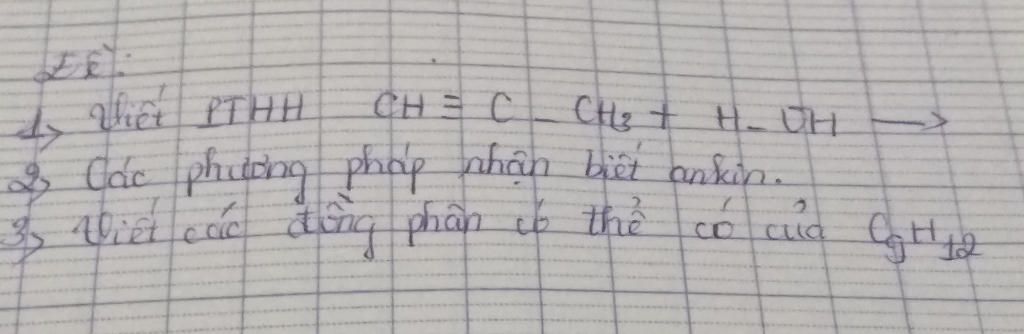 Đề:
1, Viết PTHH CH ≡ C - CH₃ + H - OH →
2, Các phương pháp nhận biết ankin.
3, Viết các đồng phân có thể có của C₅H₁₂